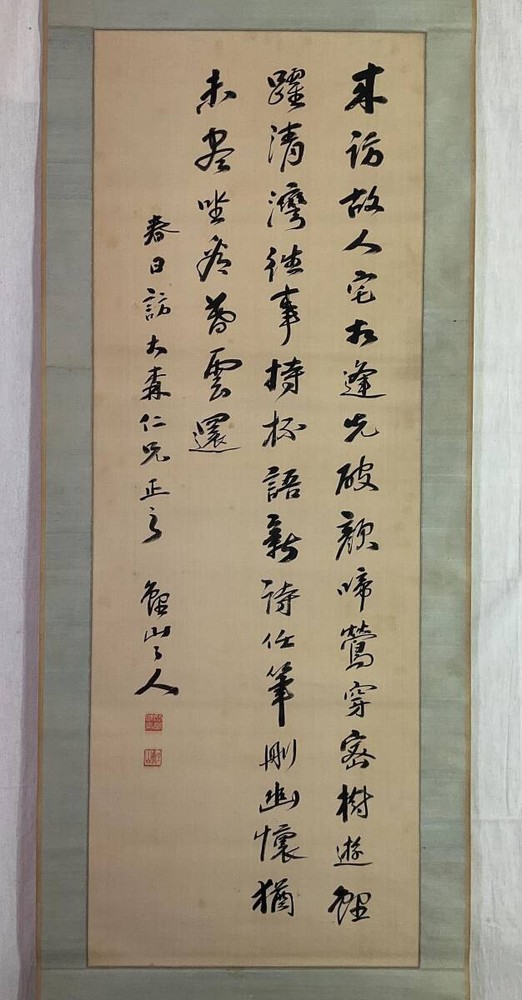 来訪故人宅相逢先破顔啼鶯穿密樹遊鯉
躍清灣往事持杯語新詩任筆刪幽懷猶
未盡坐看暮雲還
春日訪大森仁兄正之 山々人